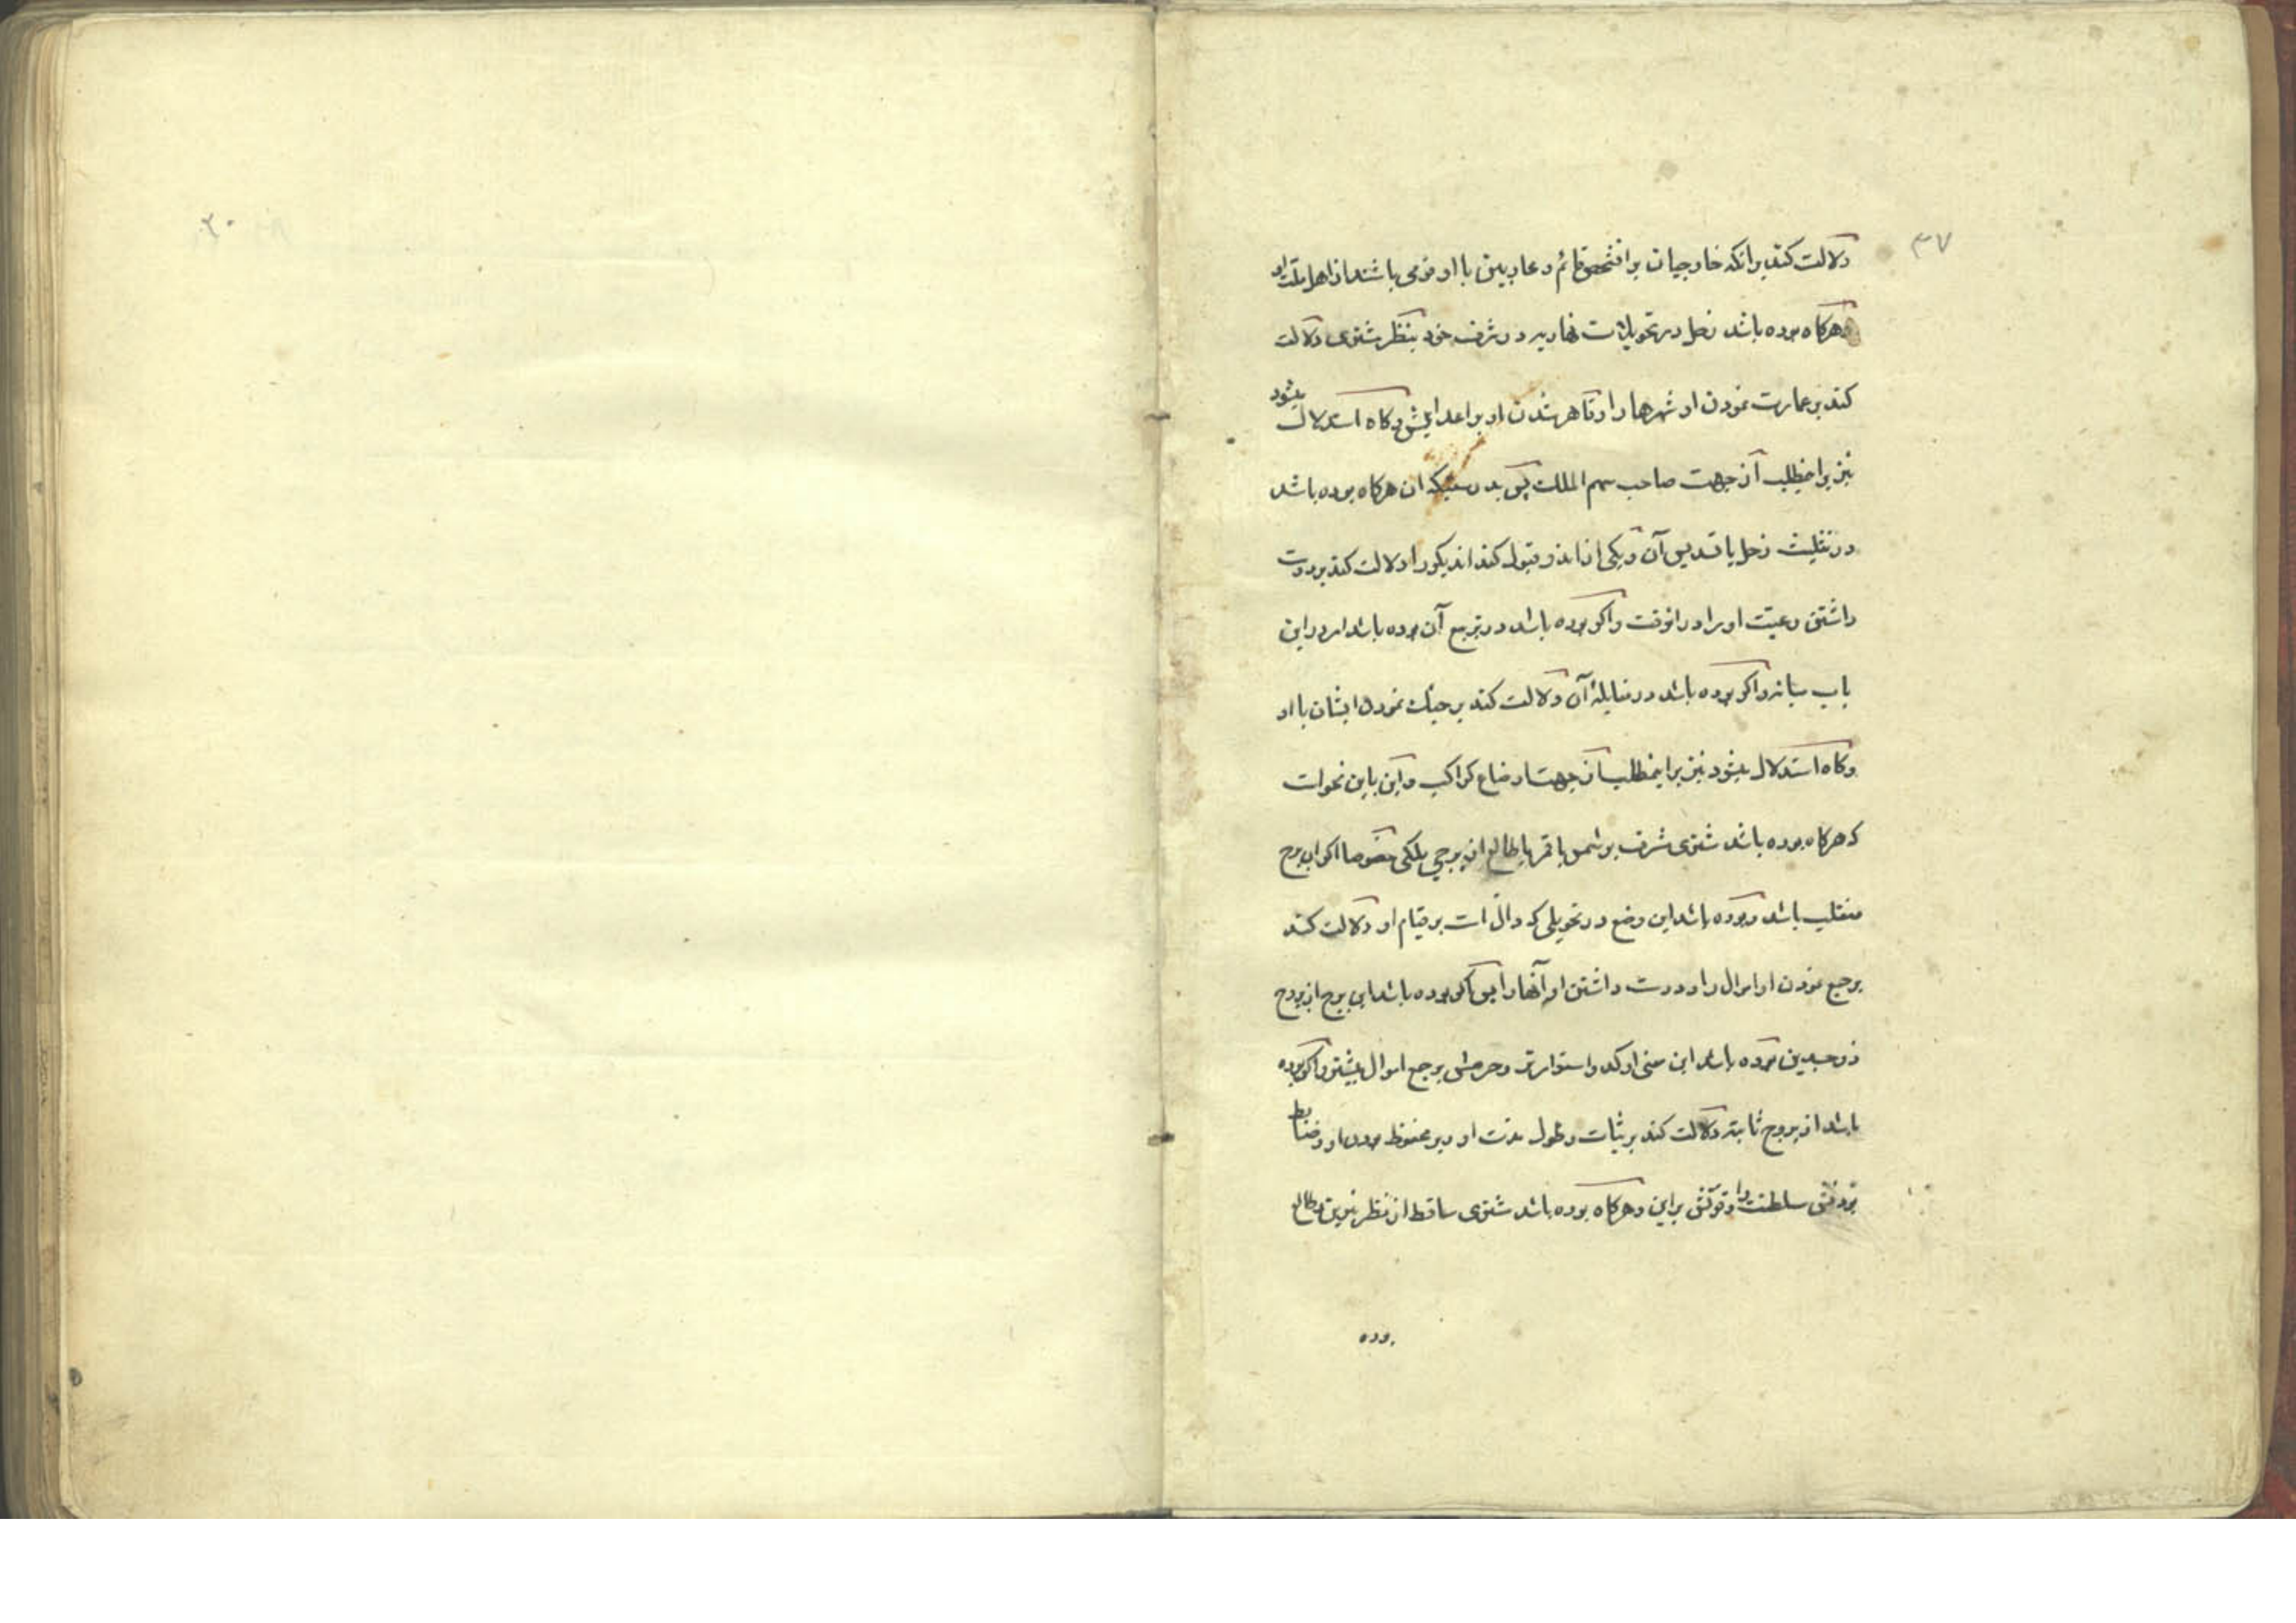 ۳۷
دلالت کند برانکه خارجیان بر انشخص قائم و محاربین با او قومی باشند از اهل ملت او
و هرکاه بوده باشد زحل در تحویلات نهاریه در شرف خود بنظر مشتری دلالت
کند بر عمارت نمودن او شهرها را و قاهر شدن او بر اعدایش و کاه استدلال میشود
نیز براینمطلب از جهت صاحب سهم الملک پس بدرستیکه ان هرکاه بوده باشد
در تثلیث زحل یا تسدیس آن و یکی از اندو قبول کند اندیکر را دلالت کند بر دوست
داشتن رعیت او را در انوقت و اکر بوده باشد در تربیع آن بوده باشد امر در این
باب میانه و اکر بوده باشد در مقابلهٔ آن دلالت کند بر جنک نمودن ایشان با او
و کاه استدلال میشود نیز براینمطلب از جهت اوضاع کواکب و این باین نحو است
که هرکاه بوده باشد مشتری مشرف بر شمس یا قمر یا طالع از برجی ملکی خصوصا اکر اب برج
منقلب باشد و بوده باشد این وضع در تحویلی که دال است بر قیام او دلالت کند
بر جمع نمودن او اموال را و دوست داشتن او آنها را پس اکر بوده باشد این برج از بروج
ذو جسدین بوده باشد این معنی اوکد و استوارتر و حرصش بر جمع اموال بیشتر و اکر بوده
باشد از بروج ثابته دلالت کند بر ثبات و طول مدت او و بر محفوظ بودن او و ضابط
بودنش سلطنت را و قوتش براین و هرکاه بوده باشد مشتری ساقط از نظر نیرین و طالع
بوده
۲۰